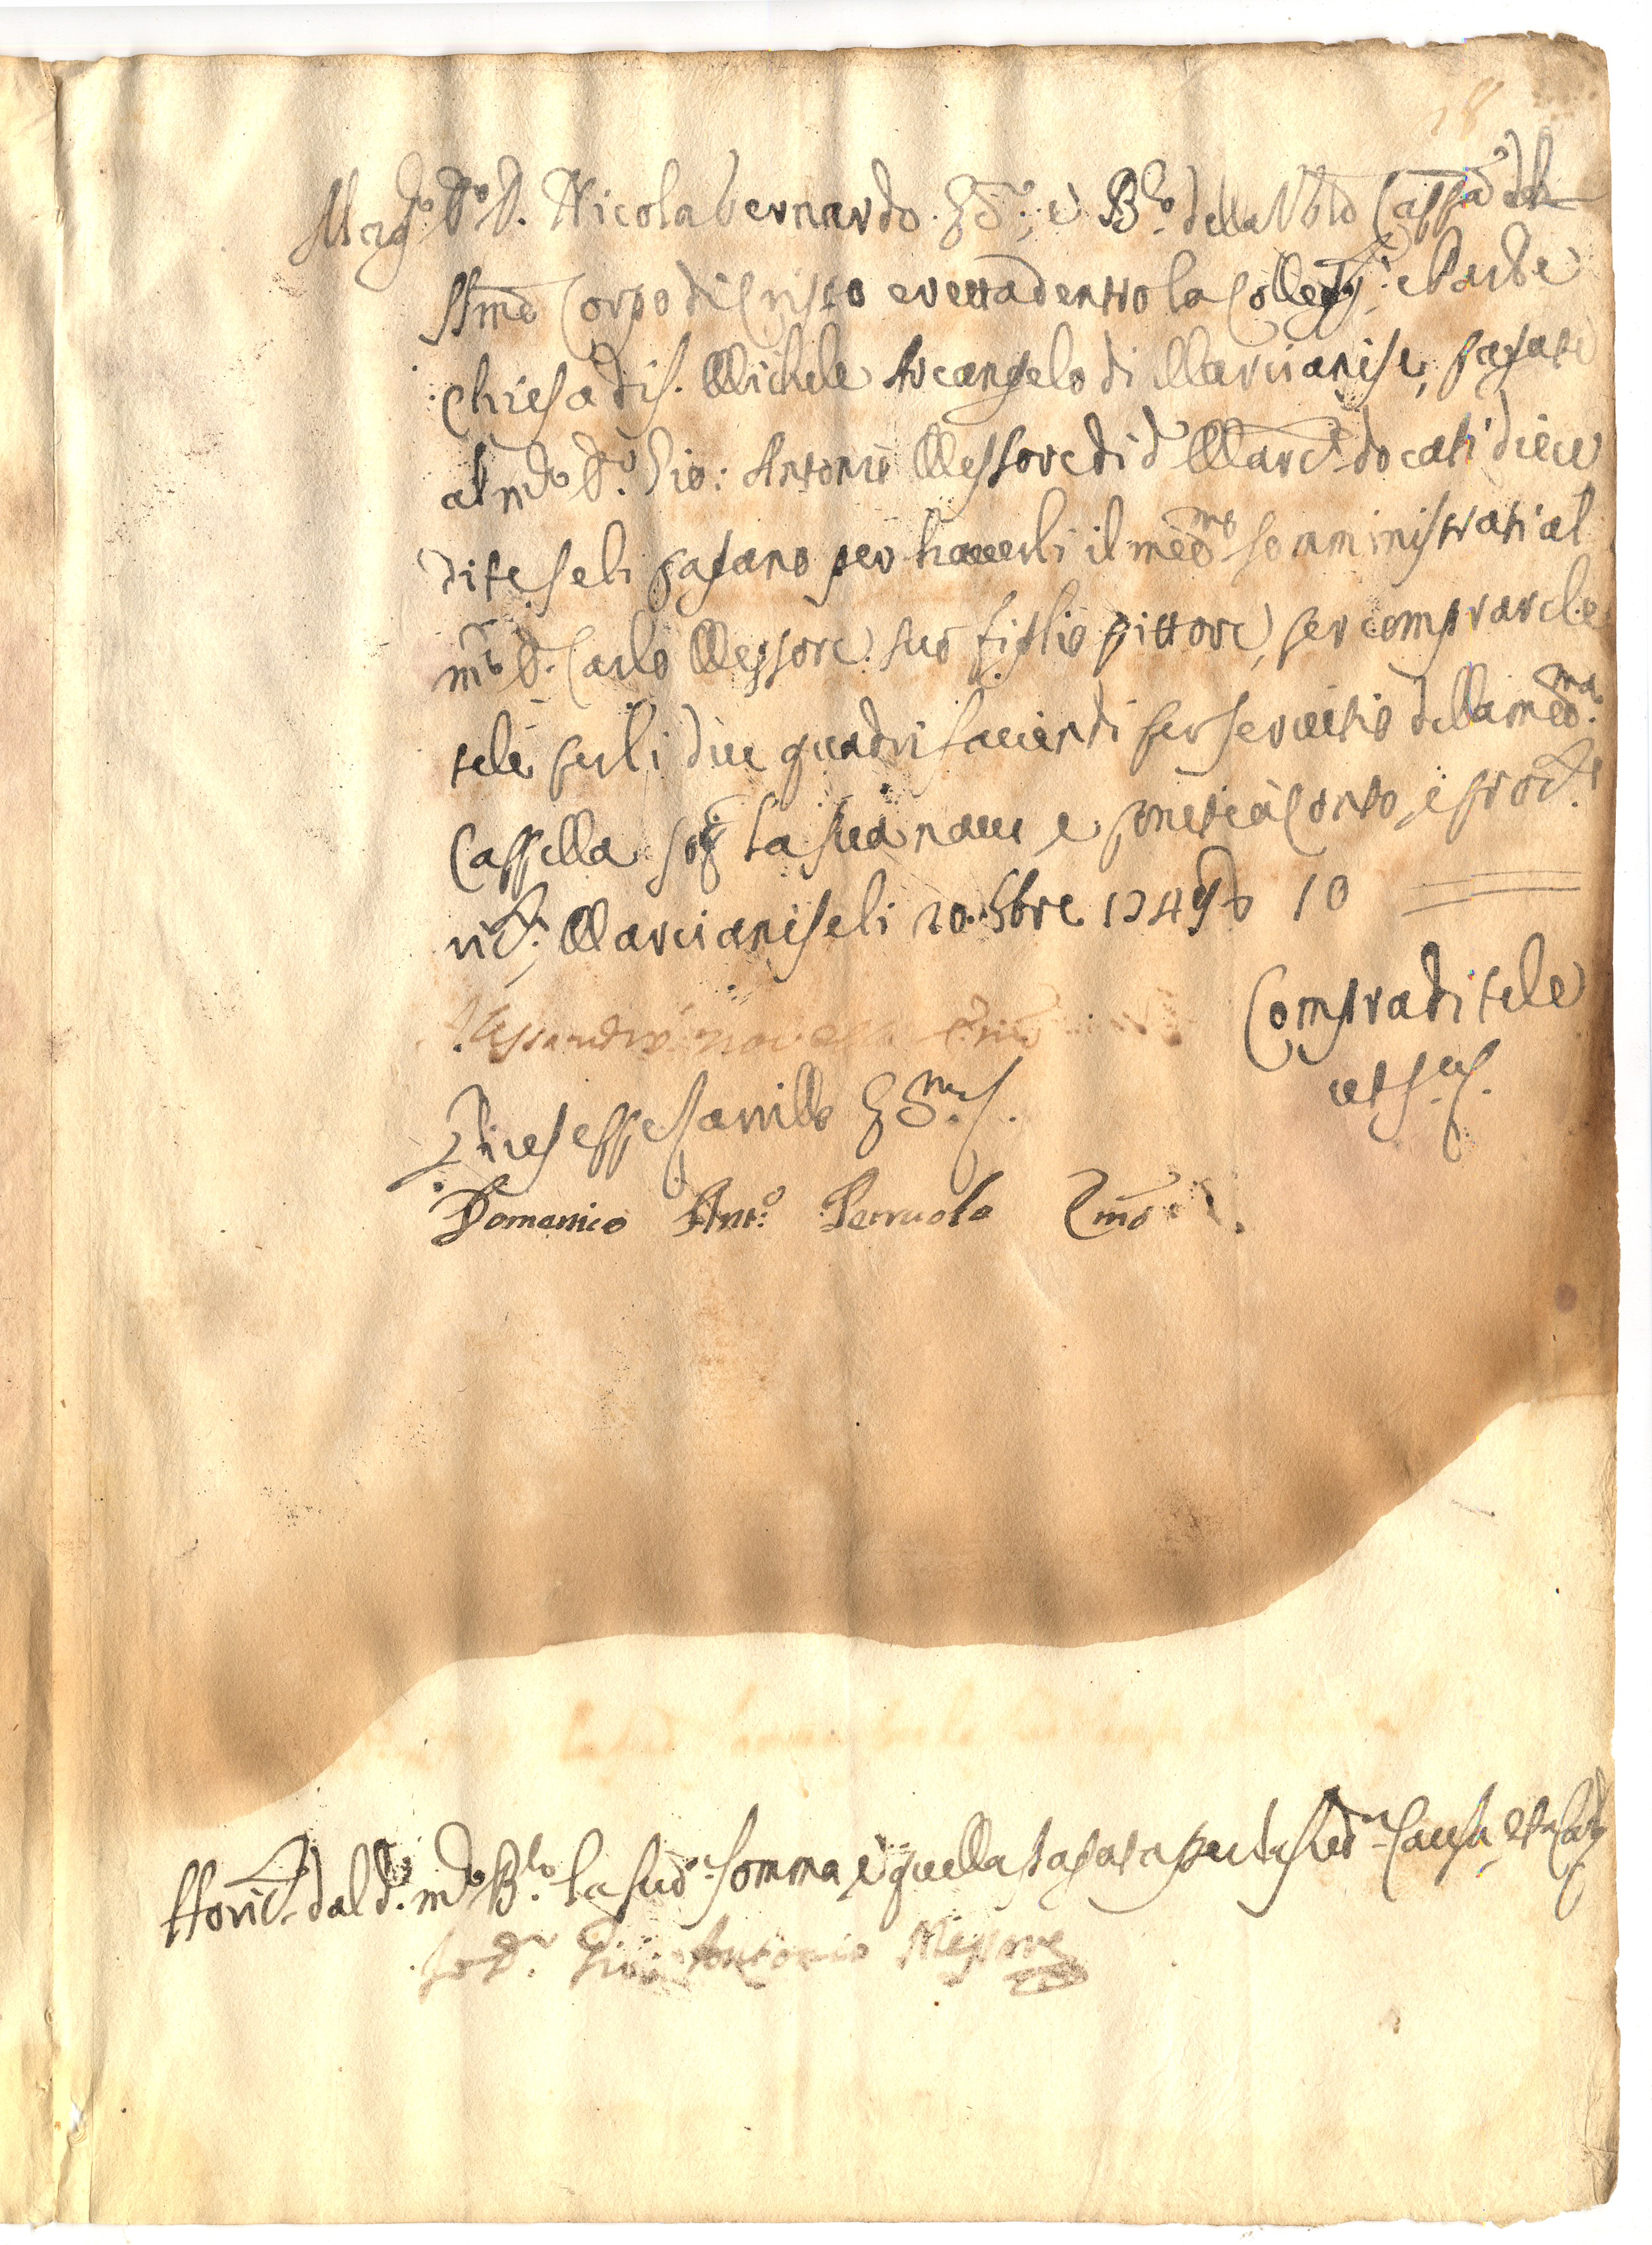 18
Mag.co D.r D. Nicola Bernardo Ec.mo, e B.ro della Ven.le Capp.a del
SS.mo Corpo di Cristo eretta dentro la Colleg.ta, e Parle
Chiesa di S. Michele Arcangelo di Marcianise, pagate
al m.co D.r Gio: Antonio Messore di d.o Marc.e docati diece
dite seli pagano per haverli il med.mo somministrati al
m.co D. Carlo Messore suo figlio pittore, per comprarcile
tele per li due quadri faciendi per servitio della med.ma
Cappella sop.a la sua nave e ponete à conto, e proc.te
ric.ta, Marcianise li 20. 8bre 1749 d. 10
Comprad i tele
ut s.a
Alessandro Novella
Giuseppe Sarrillo
Domenico Ant.o Perruolo
Ho ric.to dal d.o m.co B.ro la sud.a somma, e quella pagata per la sud.a causa
Io D.r Gio: Antonio Messore